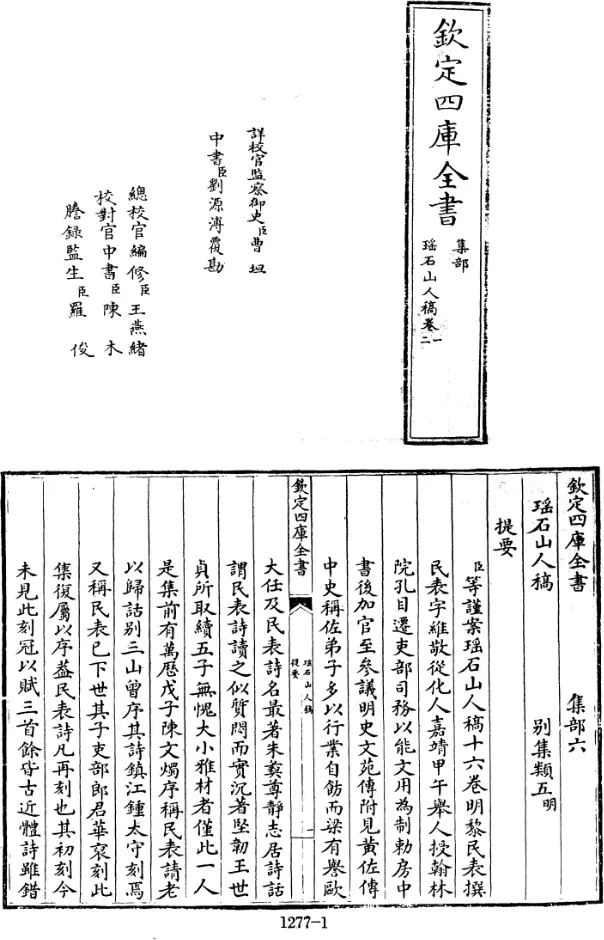 欽定四庫全書
集部
瑶石山人稿卷一二
詳校官監察御史臣曹坦
中書臣劉源溥覆勘
總校官編修臣王燕緒
校對官中書臣陳木
謄錄監生臣羅俊
欽定四庫全書 集部六
瑶石山人稿 別集類五明
提要
臣等謹案瑶石山人稿十六卷明黎民表撰
民表字維敬從化人嘉靖甲午舉人授翰林
院孔目遷吏部司務以能文用為制勅房中
書後加官至參議明史文苑傳附見黃佐傳
中史稱佐弟子多以行業自飭而梁有譽歐
欽定四庫全書
瑶石山人稿
提要
一
大任及民表詩名最著朱彝尊靜志居詩話
謂民表詩讀之似質悶而實沉著堅韌王世
貞所取續五子無愧大小雅材者僅此一人
是集前有萬歷戊子陳文燭序稱民表請老
以歸話别三山曾序其詩鎮江鍾太守刻焉
又稱民表已下世其子吏部郎君華裒刻此
集復屬以序葢民表詩凡再刻也其初刻今
未見此刻冠以賦三首餘皆古近體詩雖錯
1277-1